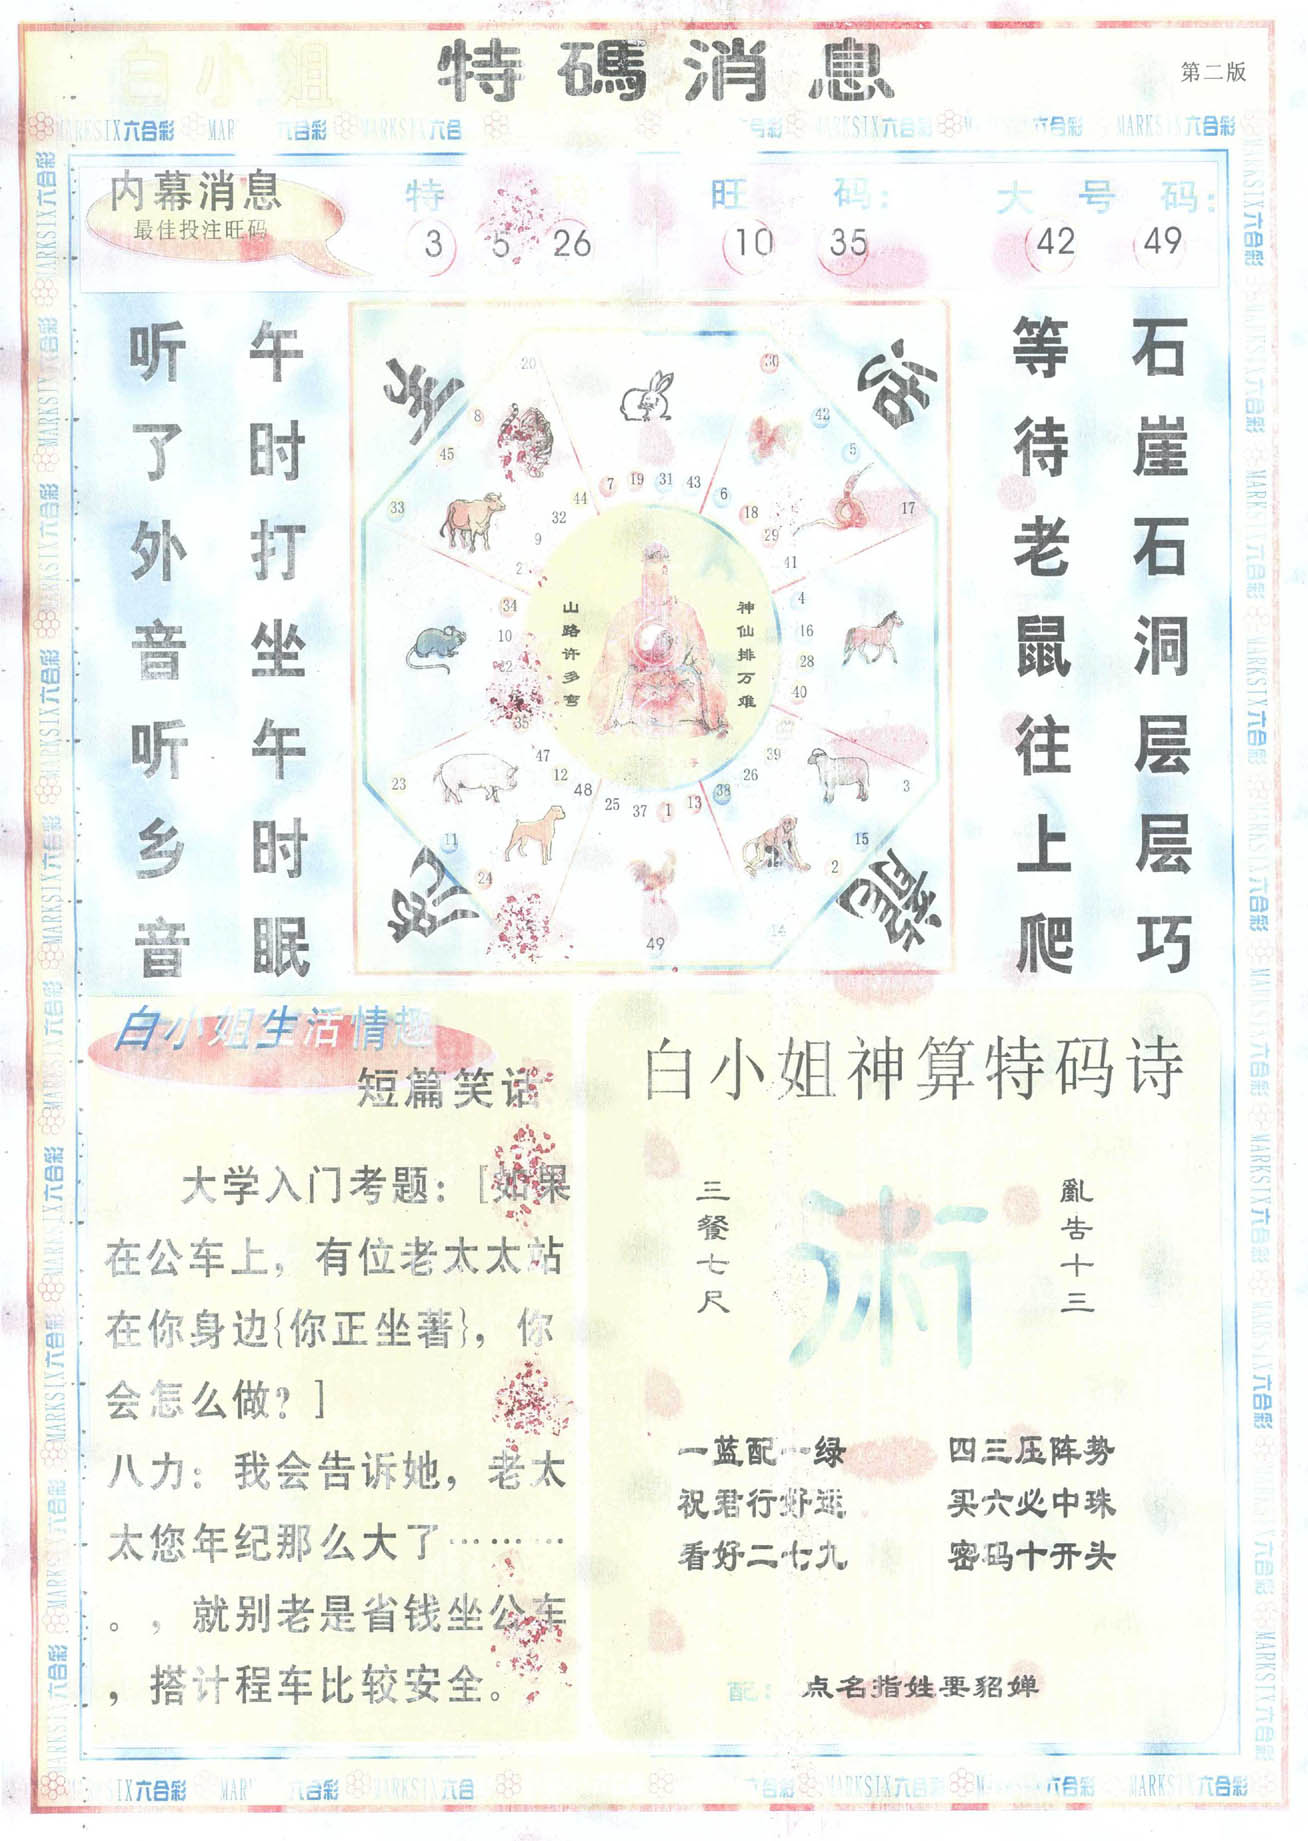 白小姐
特碼消息
第二版
MARKSIX六合彩
内幕消息
最佳投注旺码
特
3 5 26
旺码:
10 35
大号码:
42 49
午时打坐午时眠
听了外音听乡音
石崖石洞层层巧
等待老鼠往上爬
龍
20
30
8
42
45
5
33
17
44 7 19 31 43 6
32 18
9 29
2 41
34 4
10 16
22 28
35 40
47 39
12 26
48 25 37 1 13 38
23
3
11
15
24
2
49
14
神仙排万难
山路许多弯
白小姐生活情趣
短篇笑话
大学入门考题:[如果
在公车上,有位老太太站
在你身边{你正坐著},你
会怎么做?]
八力:我会告诉她,老太
太您年纪那么大了………
。,就别老是省钱坐公车
,搭计程车比较安全。
白小姐神算特码诗
亂告十三
術
三餐七尺
一蓝配一绿 四三压阵势
祝君行好运 买六必中珠
看好二七九 密码十开头
配: 点名指姓要貂婵